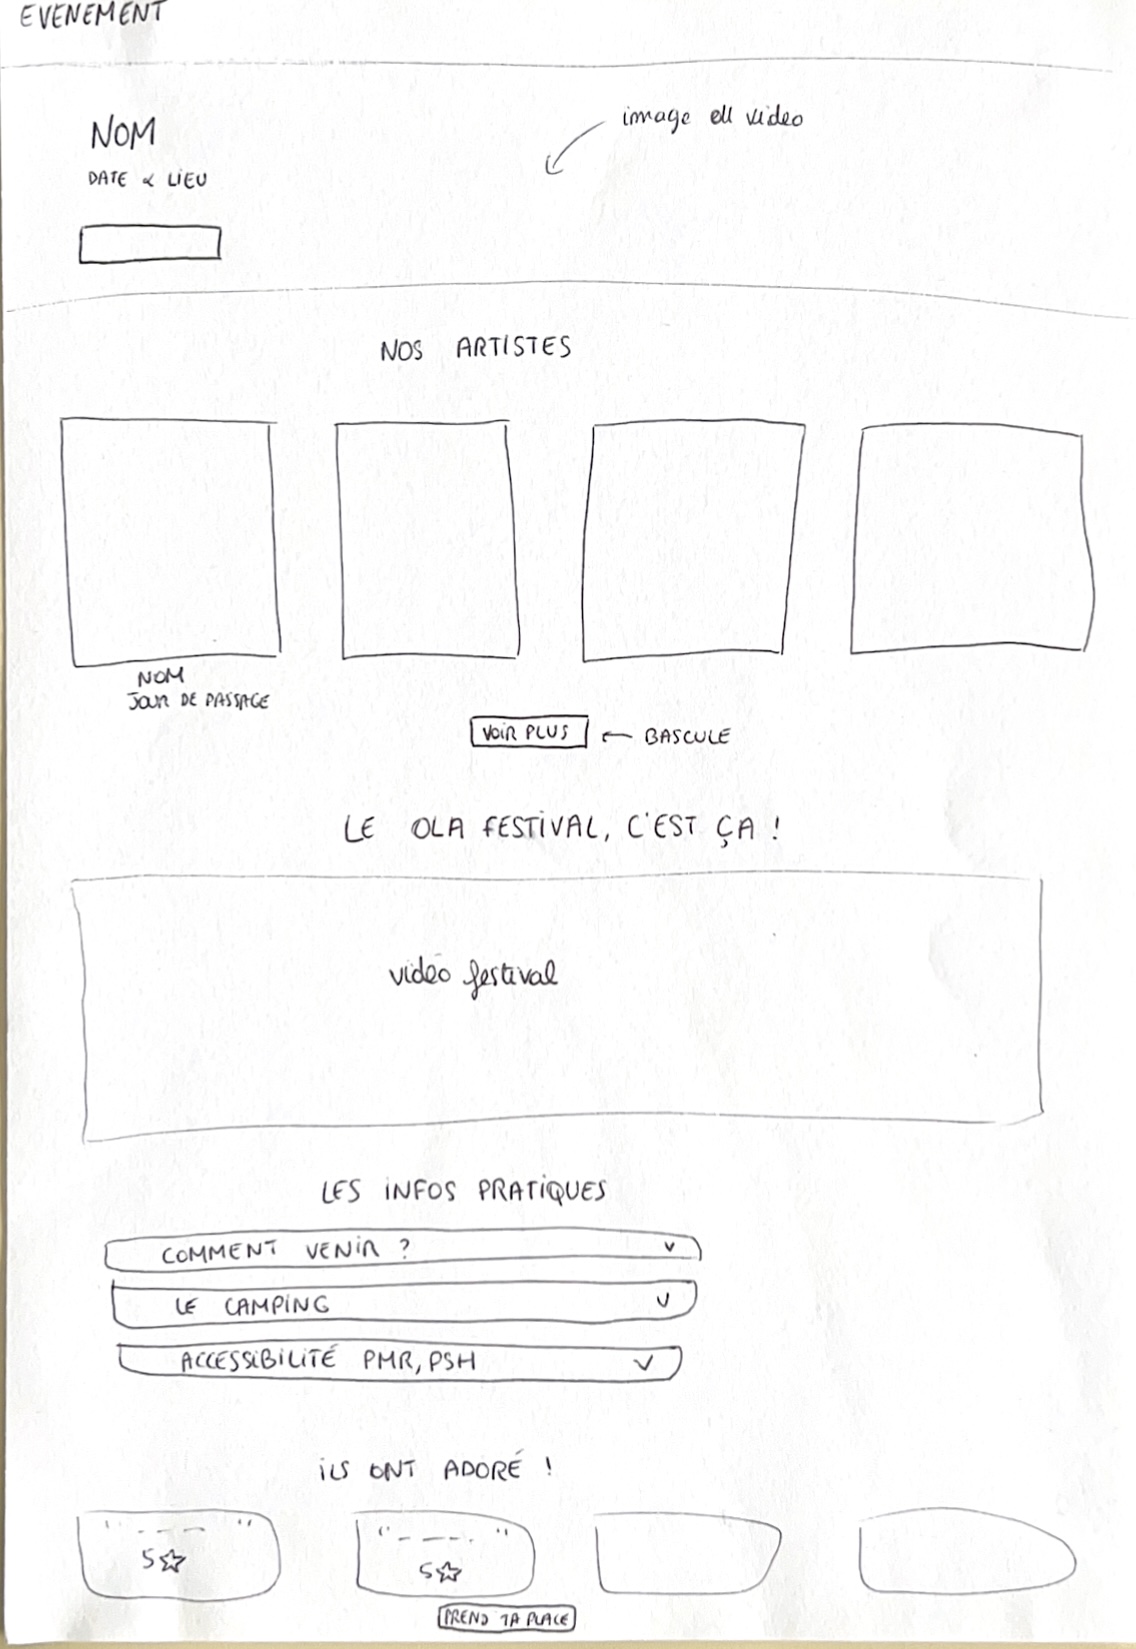 EVENEMENT
NOM
image ou video
DATE & LIEU
NOS ARTISTES
NOM
JOUR DE PASSAGE
VOIR PLUS ← BASCULE
LE OLA FESTIVAL, C'EST ÇA !
vidéo festival
LES INFOS PRATIQUES
COMMENT VENIR ? v
LE CAMPING v
ACCESSIBILITÉ PMR, PSH v
ILS ONT ADORÉ !
" - - - - " " - - - - "
5☆ 5☆
PREND TA PLACE